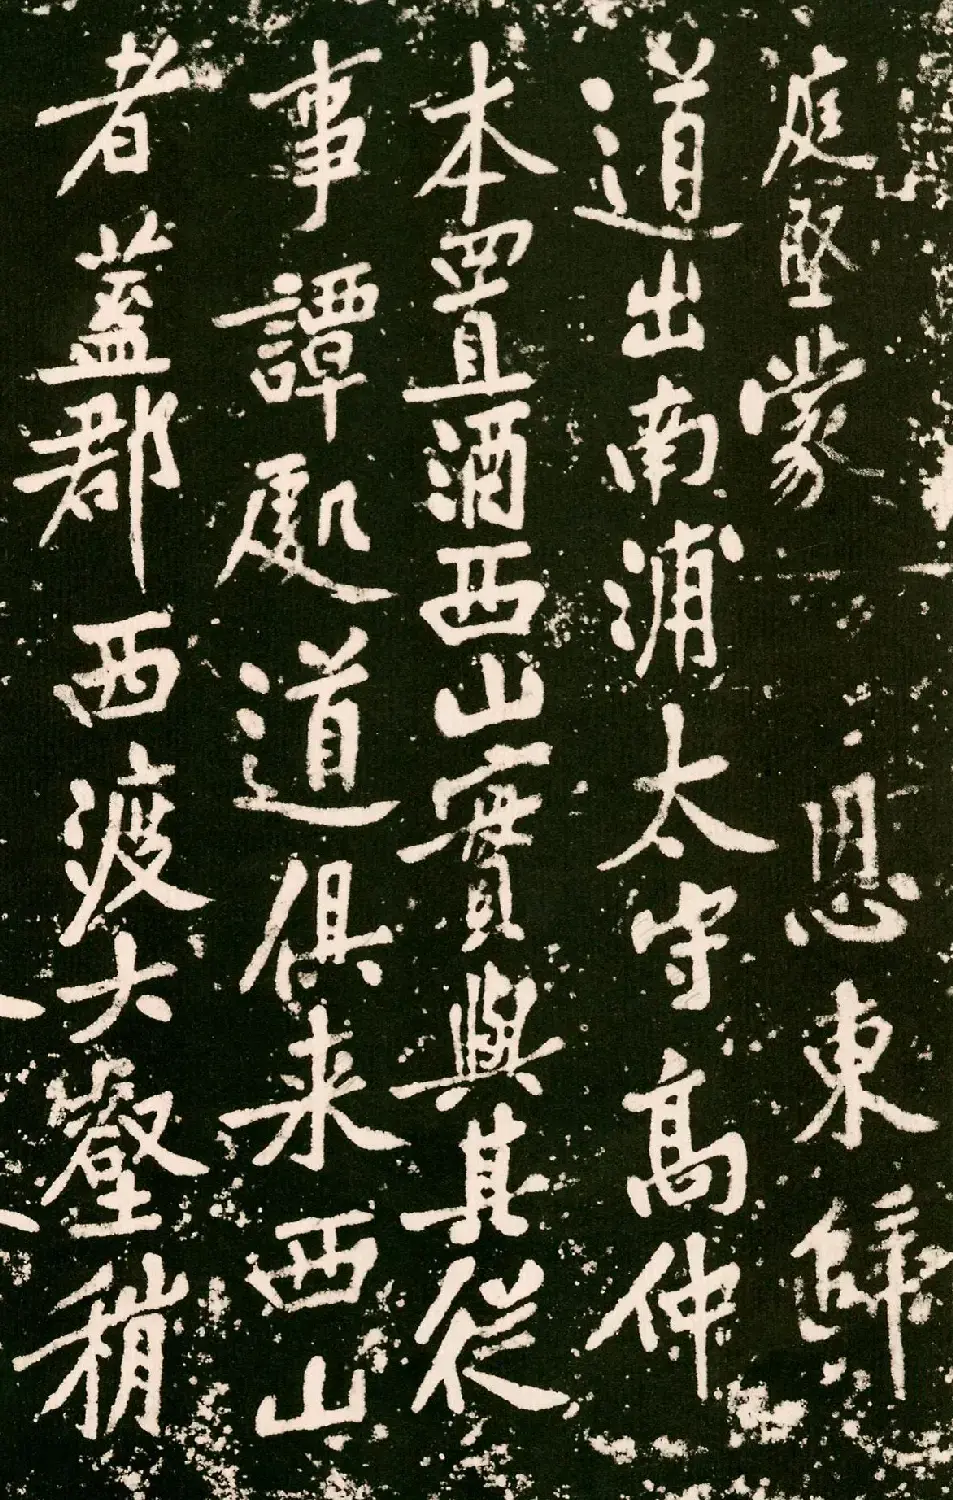 庭堅蒙恩東歸
道出南浦太守高仲
本置酒西山實與其從
事譚處道俱来西山
者蓋郡西渡大壑稍